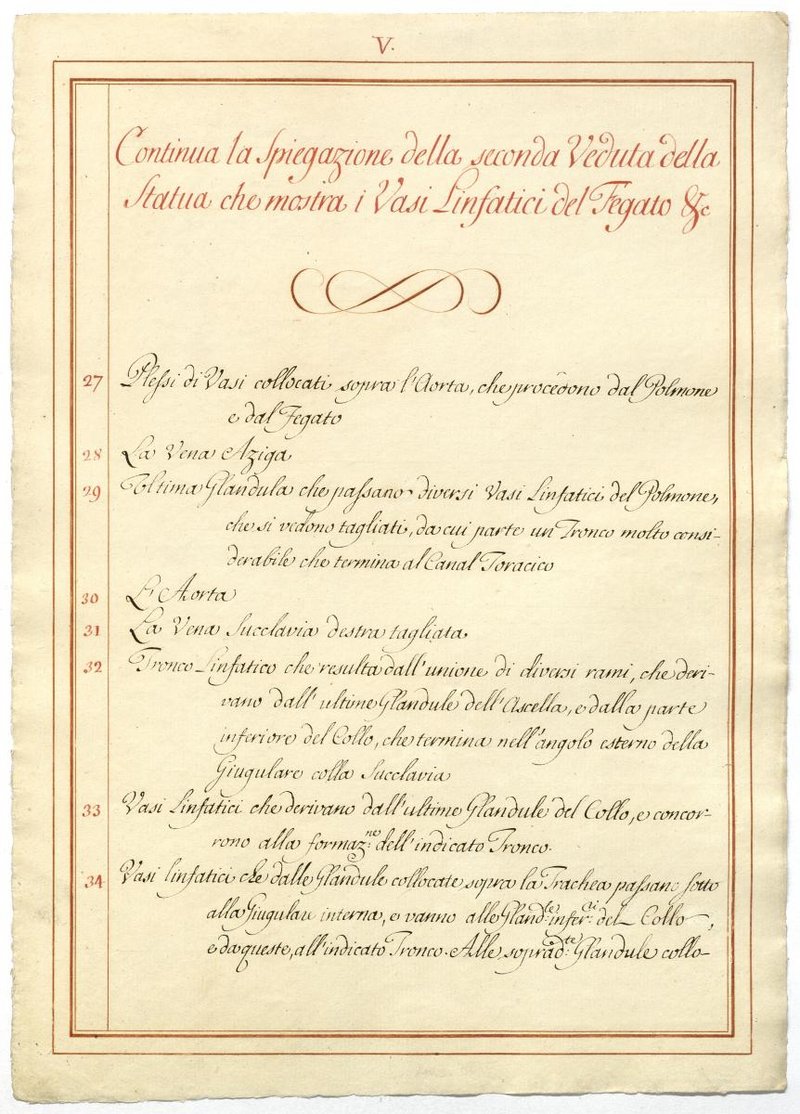 V.
Continua la Spiegazione della seconda Veduta della
Statua che mostra i Vasi Linfatici del Fegato &c
27 Plessi di Vasi collocati sopra l'Aorta, che procedono dal Polmone
e dal Fegato
28 La Vena Aziga
29 Ultima Glandula che passano diversi Vasi Linfatici del Polmone,
che si vedono tagliati, da cui parte un Tronco molto consi-
derabile che termina al Canal Toracico
30 L'Aorta
31 La Vena Succlavia destra tagliata
32 Tronco Linfatico che resulta dall'unione di diversi rami, che deri-
vano dall'ultime Glandule dell'Ascella, e dalla parte
inferiore del Collo, che termina nell'angolo esterno della
Giugulare colla Succlavia
33 Vasi Linfatici che derivano dall'ultime Glandule del Collo, e concor-
rono alla formaz:ne dell'indicato Tronco.
34 Vasi linfatici che dalle Glandule collocate sopra la Trachea passano sotto
alla Giugulare interna, e vanno alle Gland:le infer:ri del Collo,
e da queste, all'indicato Tronco. Alle soprad:te Glandule collo-